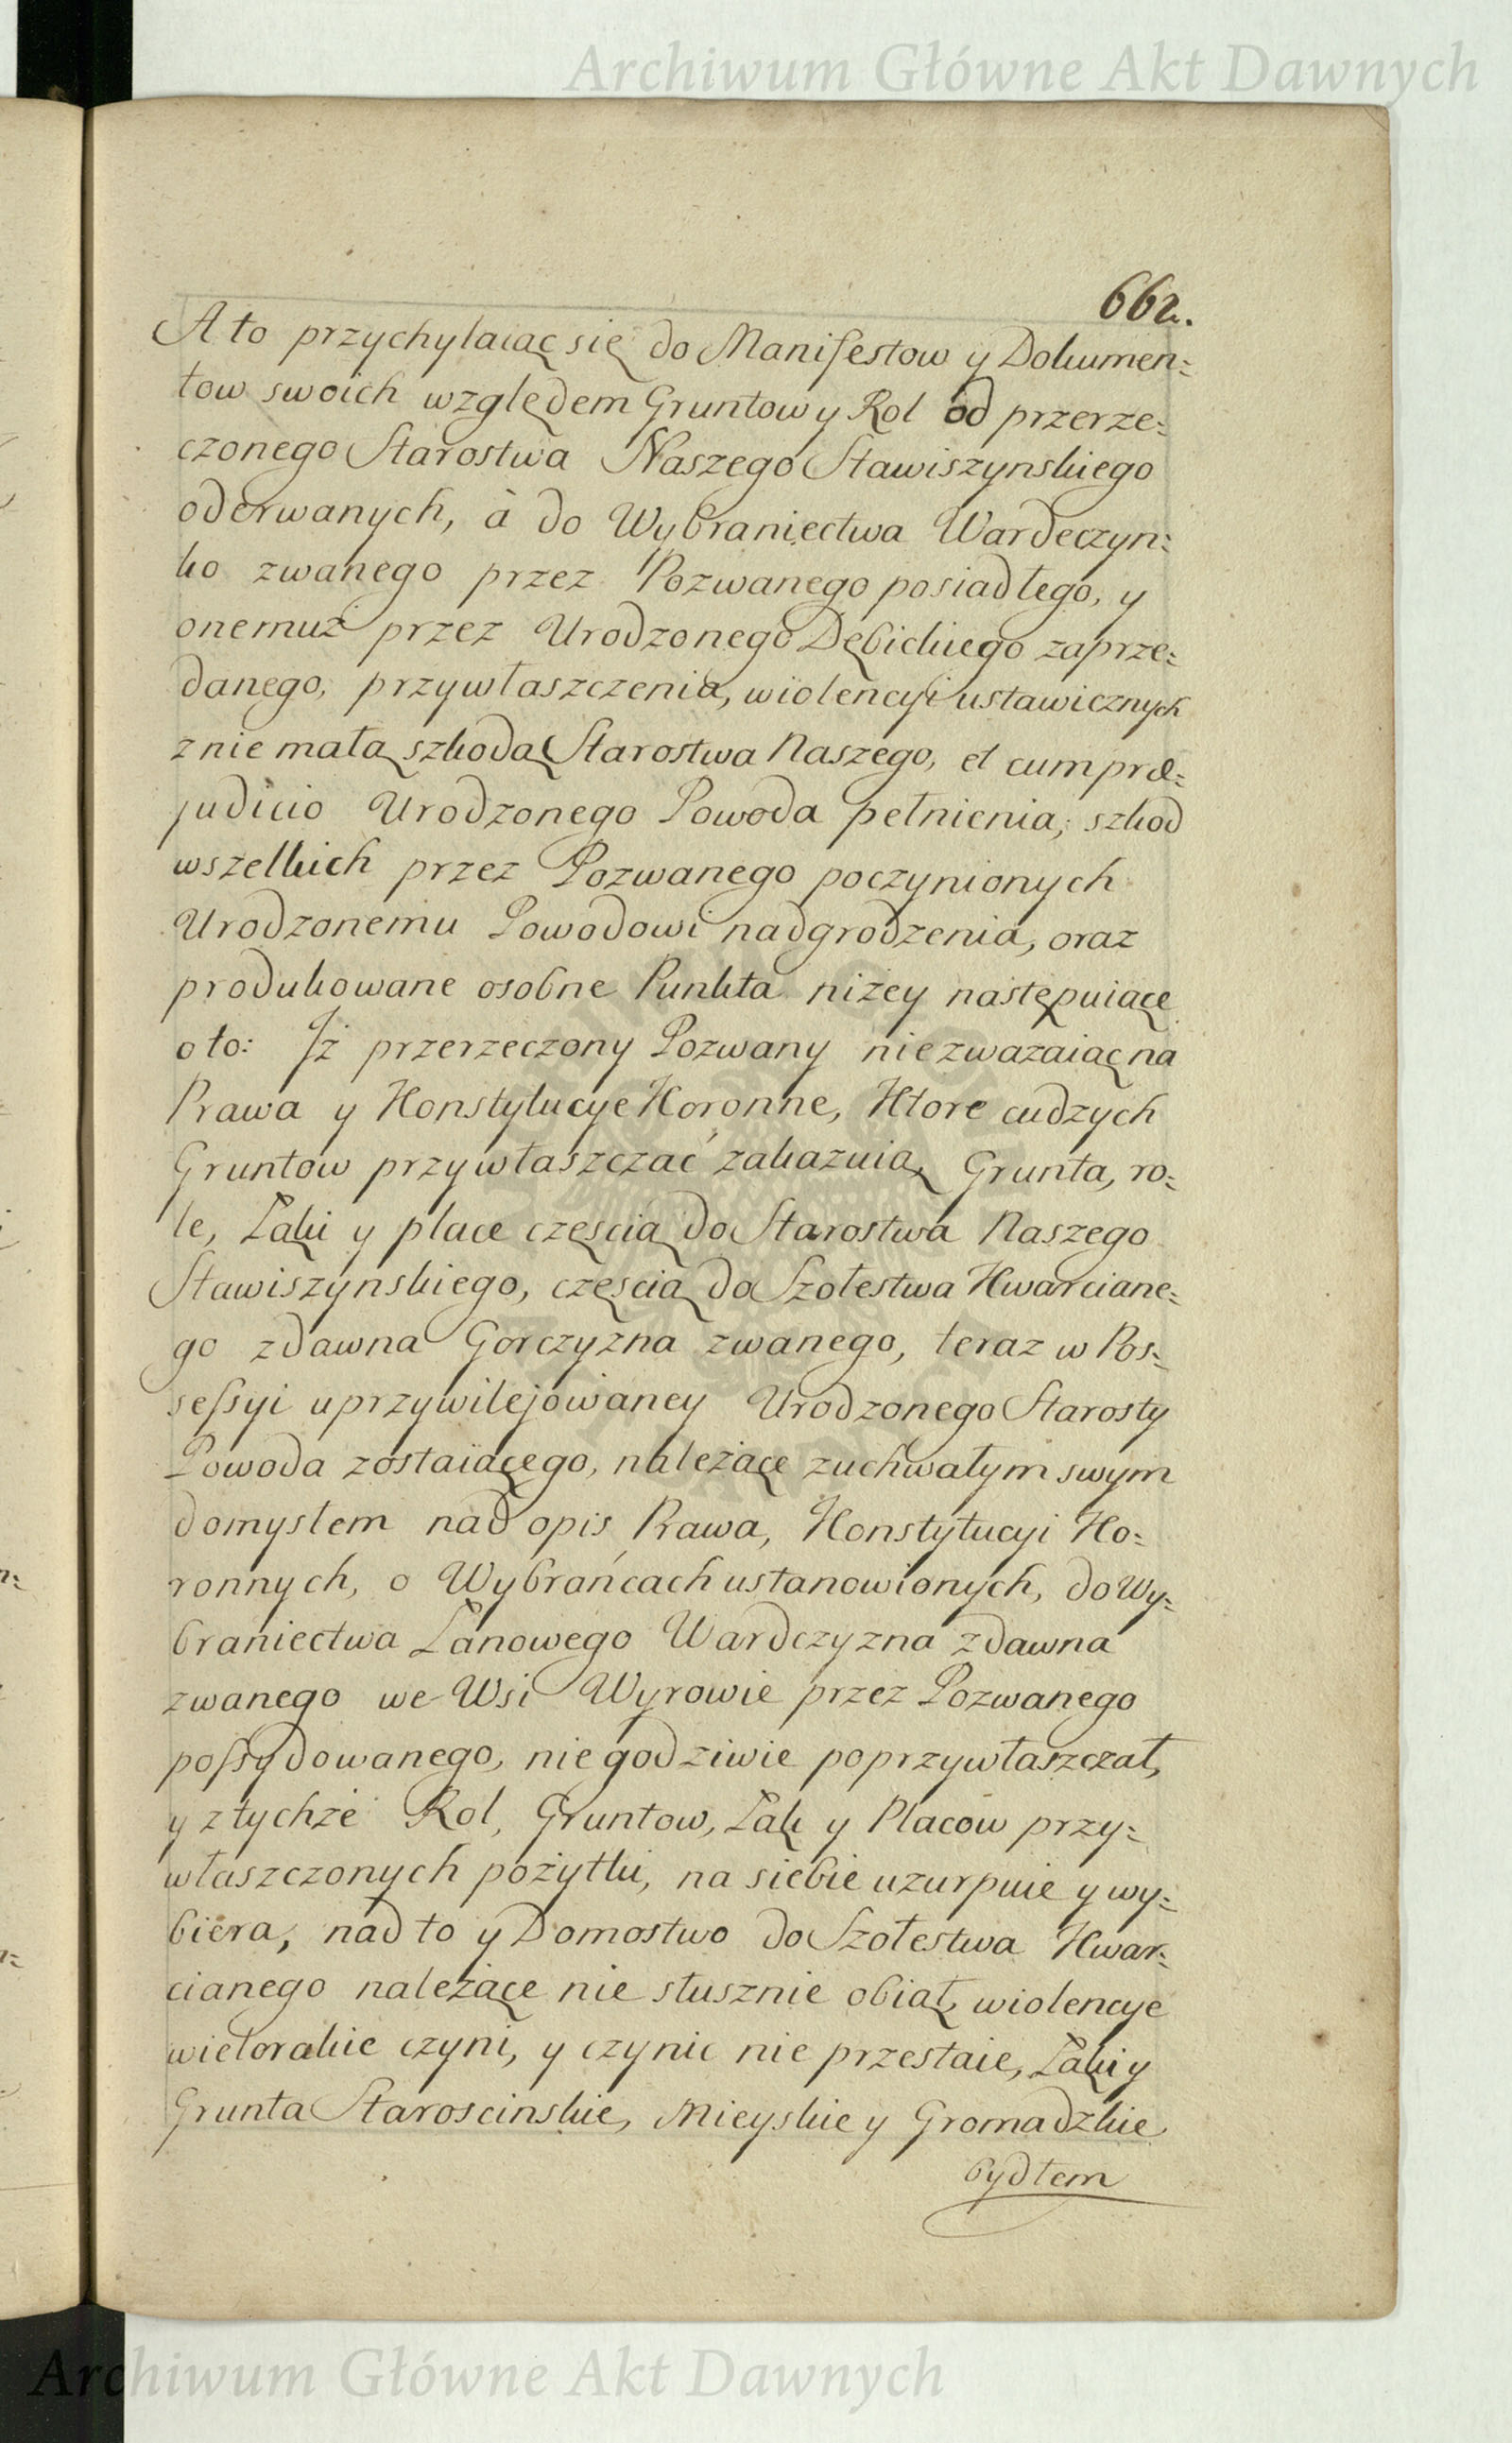 Archiwum Główne Akt Dawnych
662.
A to przychylaiąc się do Manifestow y Dokumen=
tow swoich względem Gruntow y Rol od przerze=
czonego Starostwa Naszego Stawiszynskiego
oderwanych, à do Wybraniectwa Wardeczyn=
ko zwanego przez Pozwanego posiadłego, y
onemuż przez Urodzonego Dębickiego zaprze=
danego, przywłaszczenia, wiolencyi ustawicznych
z nie małą szkodą Starostwa Naszego, et cum præ=
judicio Urodzonego Powoda pełnienia, szkod
wszelkich przez Pozwanego poczynionych
Urodzonemu Powodowi nadgrodzenia, oraz
produkowane osobne Punkta niżey następuiące
oto: Jż przerzeczony Pozwany nie zwazaiąc na
Prawa y Konstytucye Koronne, Ktore cudzych
Gruntow przywłaszczać zakazuią, Grunta, ro=
le, Łąki y place częscią do Starostwa Naszego
Stawiszynskiego, częscią do Szołestwa Kwarciane=
go zdawna Gorczyzna zwanego, teraz w Pos=
sessyi uprzywilejowaney Urodzonego Starosty
Powoda zostaiącego, należące zuchwałym swym
domysłem nad opis Prawa, Konstytucyi Ko=
ronnych, o Wybrańcach ustanowionych, do Wy=
braniectwa Łanowego Wardczyzna zdawna
zwanego we Wsi Wyrowie przez Pozwanego
possydowanego, niegodziwie poprzywłaszczał,
y z tychże Rol, Gruntow, Łąk y Placow przy=
właszczonych pożytki, na siebie uzurpuie y wy=
biera, nad to y Domostwo do Szołestwa Kwar=
cianego należące nie słusznie obiął, wiolencye
wielorakie czyni, y czynic nie przestaie, Łąki y
Grunta Staroscinskie, Mieyskie y Gromadzkie
bydłem
Archiwum Główne Akt Dawnych